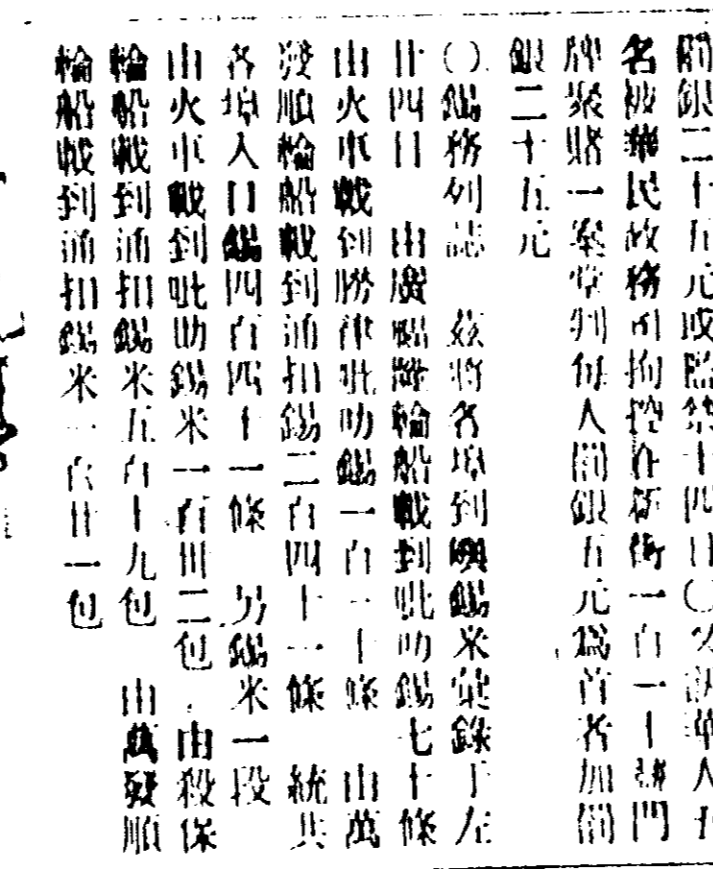 罰銀二十五元或監禁十四日〇又訊華人
名被華民政務司拘控在新街一百一十號門
牌聚賭一案堂判每人罰銀五元爲首者加罰
銀二十五元
〇錫務列誌 茲將各埠到嶼錫米彙錄于左
廿四日 由廣 輪船載到吡叻錫七十條
山火車載到勝律吡叻錫一百一十條 由萬
發順輪船載到涌扣錫二百四十一條 統共
各埠入口錫四百四十一條 另錫米一段
由火車載到吡叻錫米一百卅二包 由殺保
輪船載到涌扣錫米五百十九包 由萬發順
輪船載到涌扣錫米一百廿一包